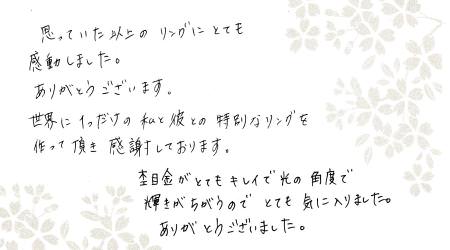 思っていた以上の リングに とても
感動しました。
ありがとうございます。
世界に1つだけの 私と彼との 特別なリングを
作って頂き 感謝しております。
杢目金がとても キレイで光の 角度で
輝きがちがうので とても 気に入りました。
ありがとうございました。